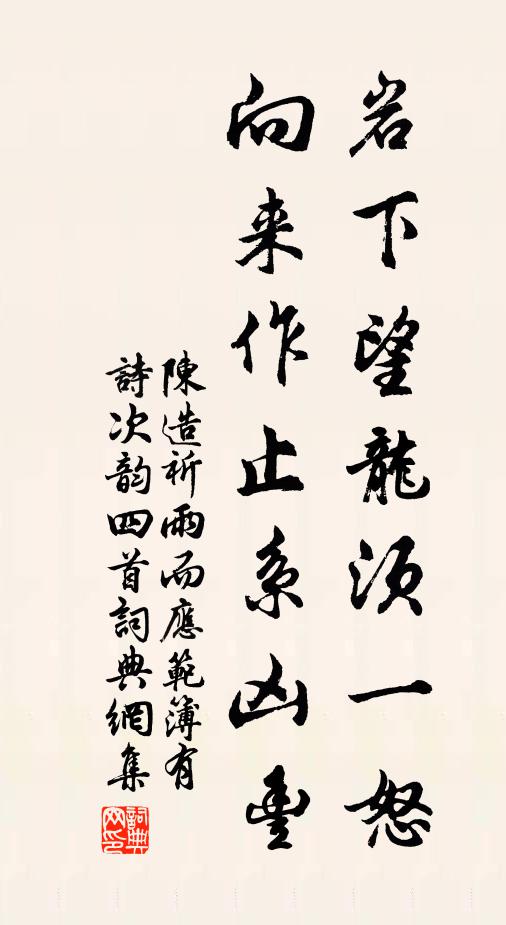 岩下望龍須一怒
向来作止系凶豐
陳造祈雨而應範簿有
詩次韵四首詞典網集
詞典網印